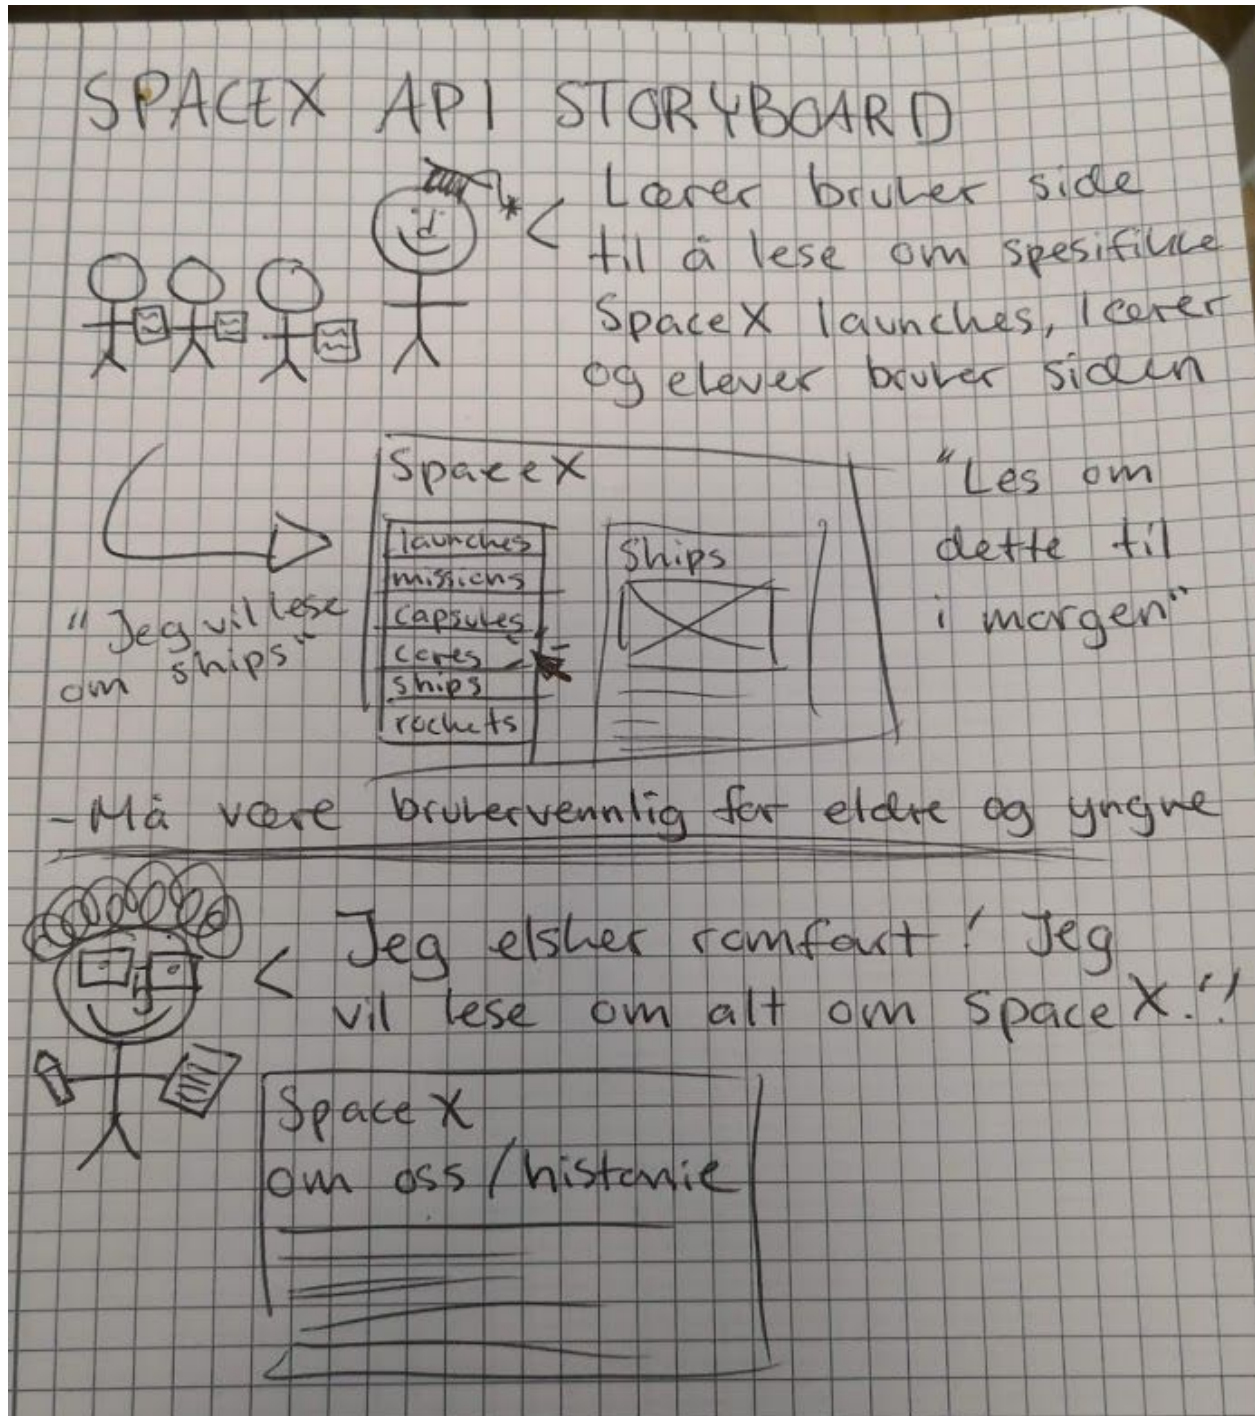 SPACEX API STORYBOARD
Lærer bruker side
til å lese om spesifikke
SpaceX launches, lærer
og elever bruker siden
SpaceX
launches
missions
capsules
cores
ships
rockets
Ships
"Les om
dette til
i morgen"
"Jeg vil lese
om ships"
- Må være brukervennlig for eldre og yngre
Jeg elsker romfart! Jeg
vil lese om alt om SpaceX!!
SpaceX
om oss/historie